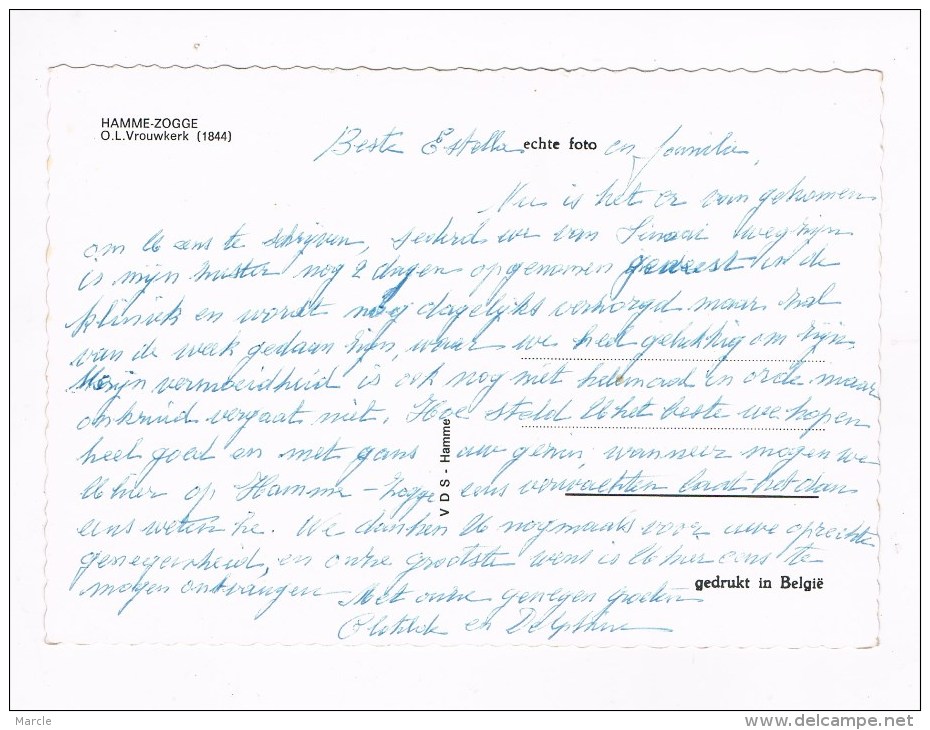 HAMME-ZOGGE
O.L.Vrouwkerk (1844)
echte foto
Beste Estella en familie,
Nu is het er van gekomen
om U eens te schrijven, sederd we van Sinaai weg zijn
is mijn zuster nog 2 dagen opgenomen geweest in de
kliniek en wordt nog dagelijks verzorgd maar zal
van de week gedaan zijn, waar we heel gelukkig om zijn.
Mijn vermoeidheid is ook nog niet helemaal in orde maar
onkruid vergaat niet. Hoe steld U het beste we hopen
heel goed en met gans uw gezin, wanneer mogen we
U hier op Hamme-Zogge eens verwachten laat het dan
eens weten he. We danken U nogmaals voor uwe oprechte
genegenheid, en onze grootste wens is U hier eens te
mogen ontvangen
Met onze genegen groeten
Clotilde en Delphine
VDS - Hamme
gedrukt in België
Marcle
www.delcampe.net